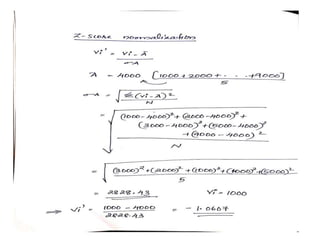 Z-score normalization
Vi' = Vi - Ā
σA
Ā = 4000 [1000 + 2000 + . . . + 9000]
5
σA = √ Σ(Vi - Ā)²
N
= √ (1000 - 4000)² + (2000 - 4000)² +
(3000 - 4000)² + (5000 - 4000)²
+ (9000 - 4000)²
N
= √ (3000)² + (2000)² + (1000)² + (1000)² + (5000)²
5
= 2828.43 Vi = 1000
⇒ Vi' = 1000 - 4000 = - 1.0607
2828.43